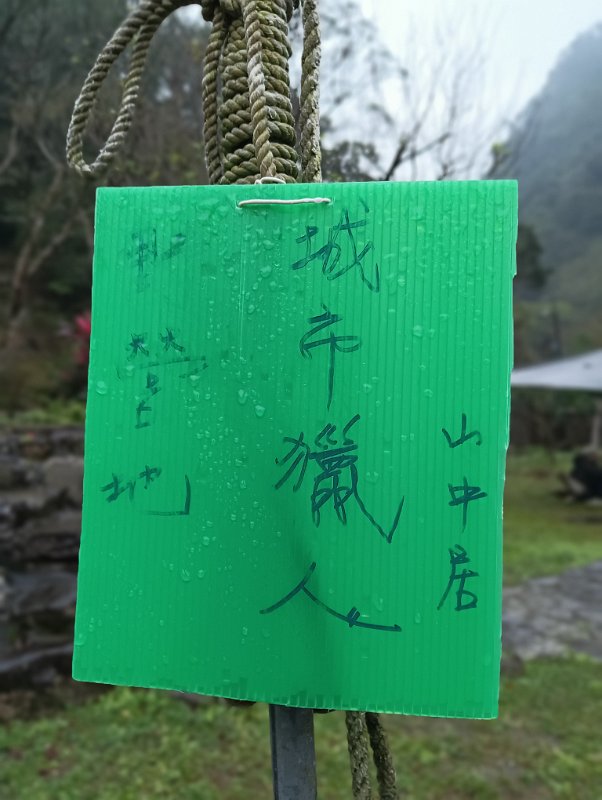 山中居
城市獵人
營地